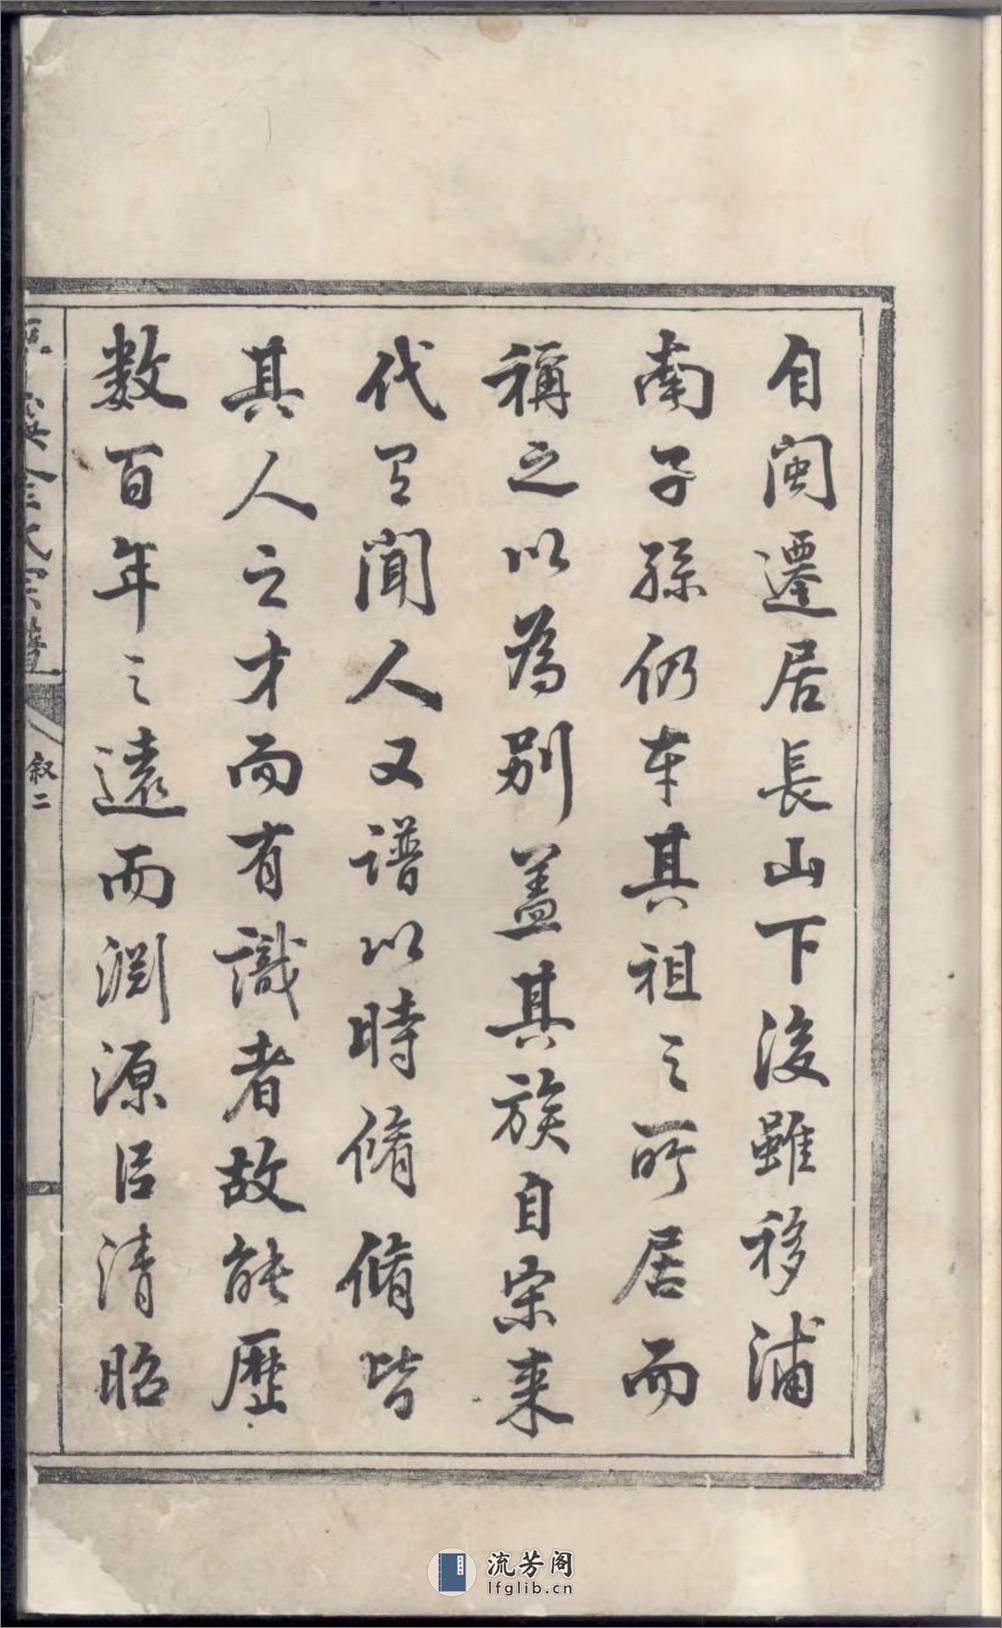 自閩遷居長山下後雖移浦
南子孫仍本其祖之所居而
稱之以為別蓋其族自宋來
代有聞人又譜以時脩脩皆
其人之才而有識者故能歷
數百年之遠而淵源以清昭
金氏宗譜
叙二
流芳阁
lfglib.cn